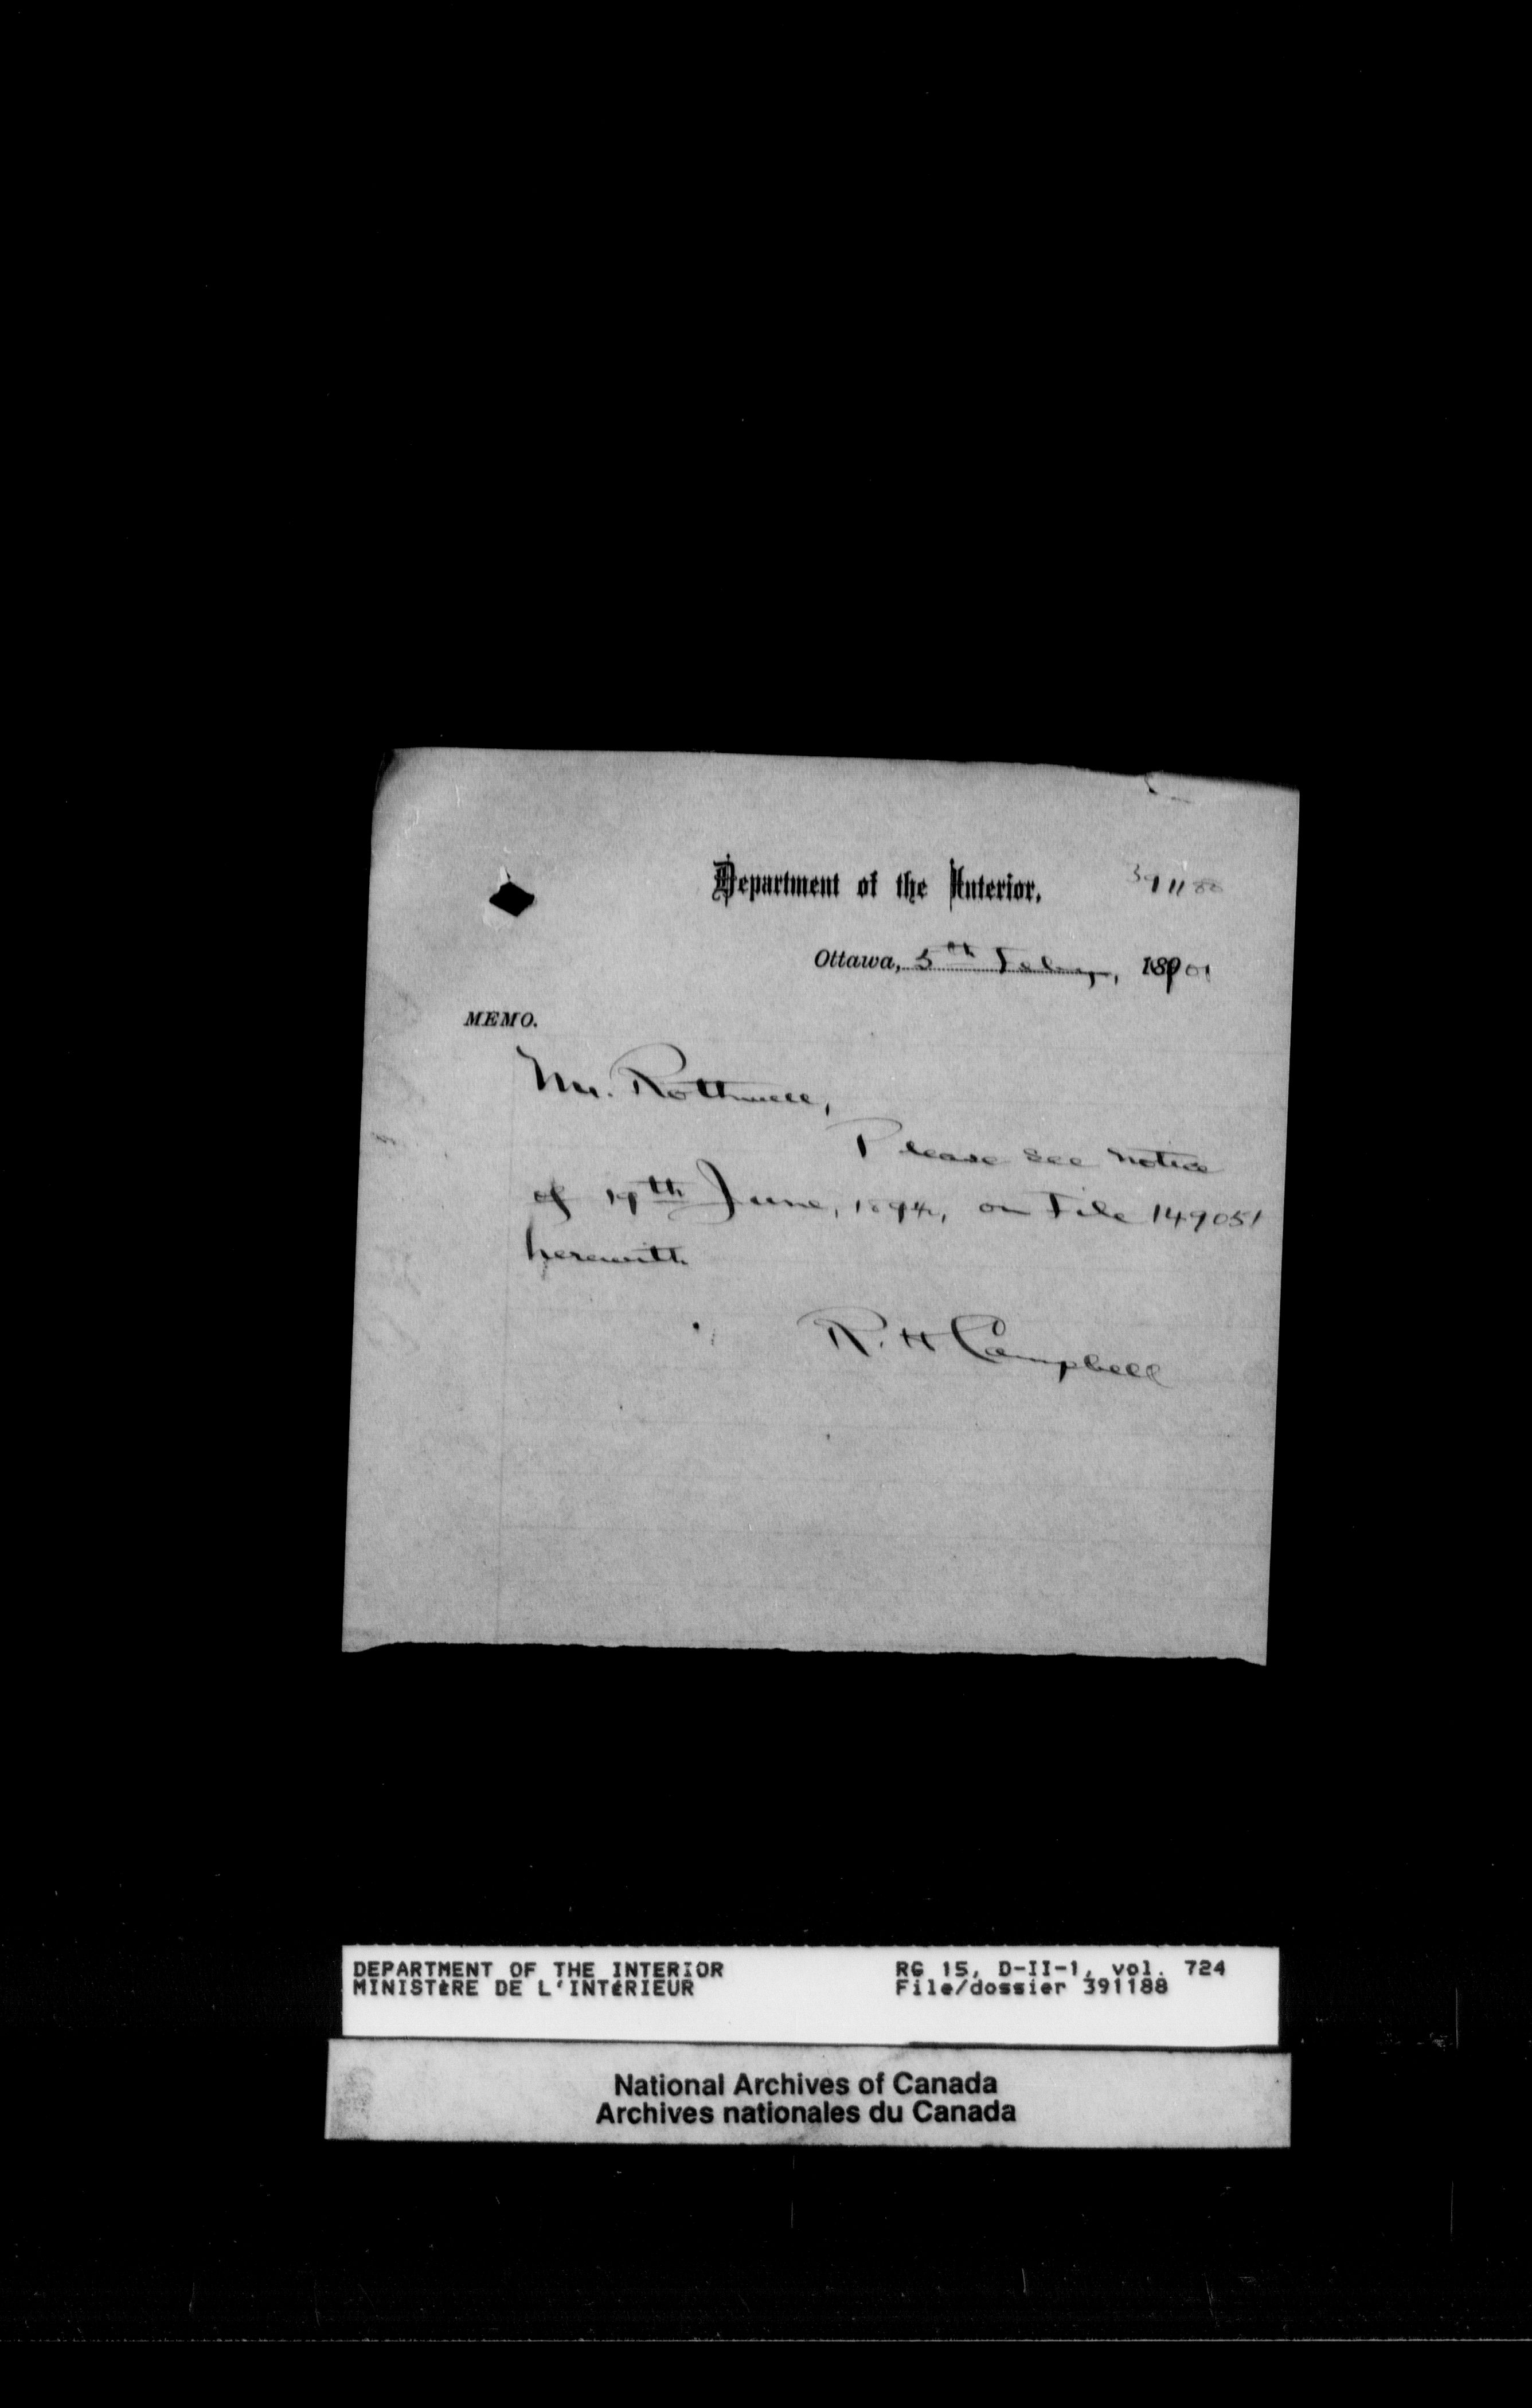 Department of the Interior.
391188
Ottawa, 5th Feby, 1901
MEMO.
Mr. Rothwell,
Please see notice
of 19th June, 1894, on File 149051
herewith
R. H Campbell
DEPARTMENT OF THE INTERIOR
MINISTÈRE DE L'INTÉRIEUR
RG 15, D-II-1, vol. 724
File/dossier 391188
National Archives of Canada
Archives nationales du Canada